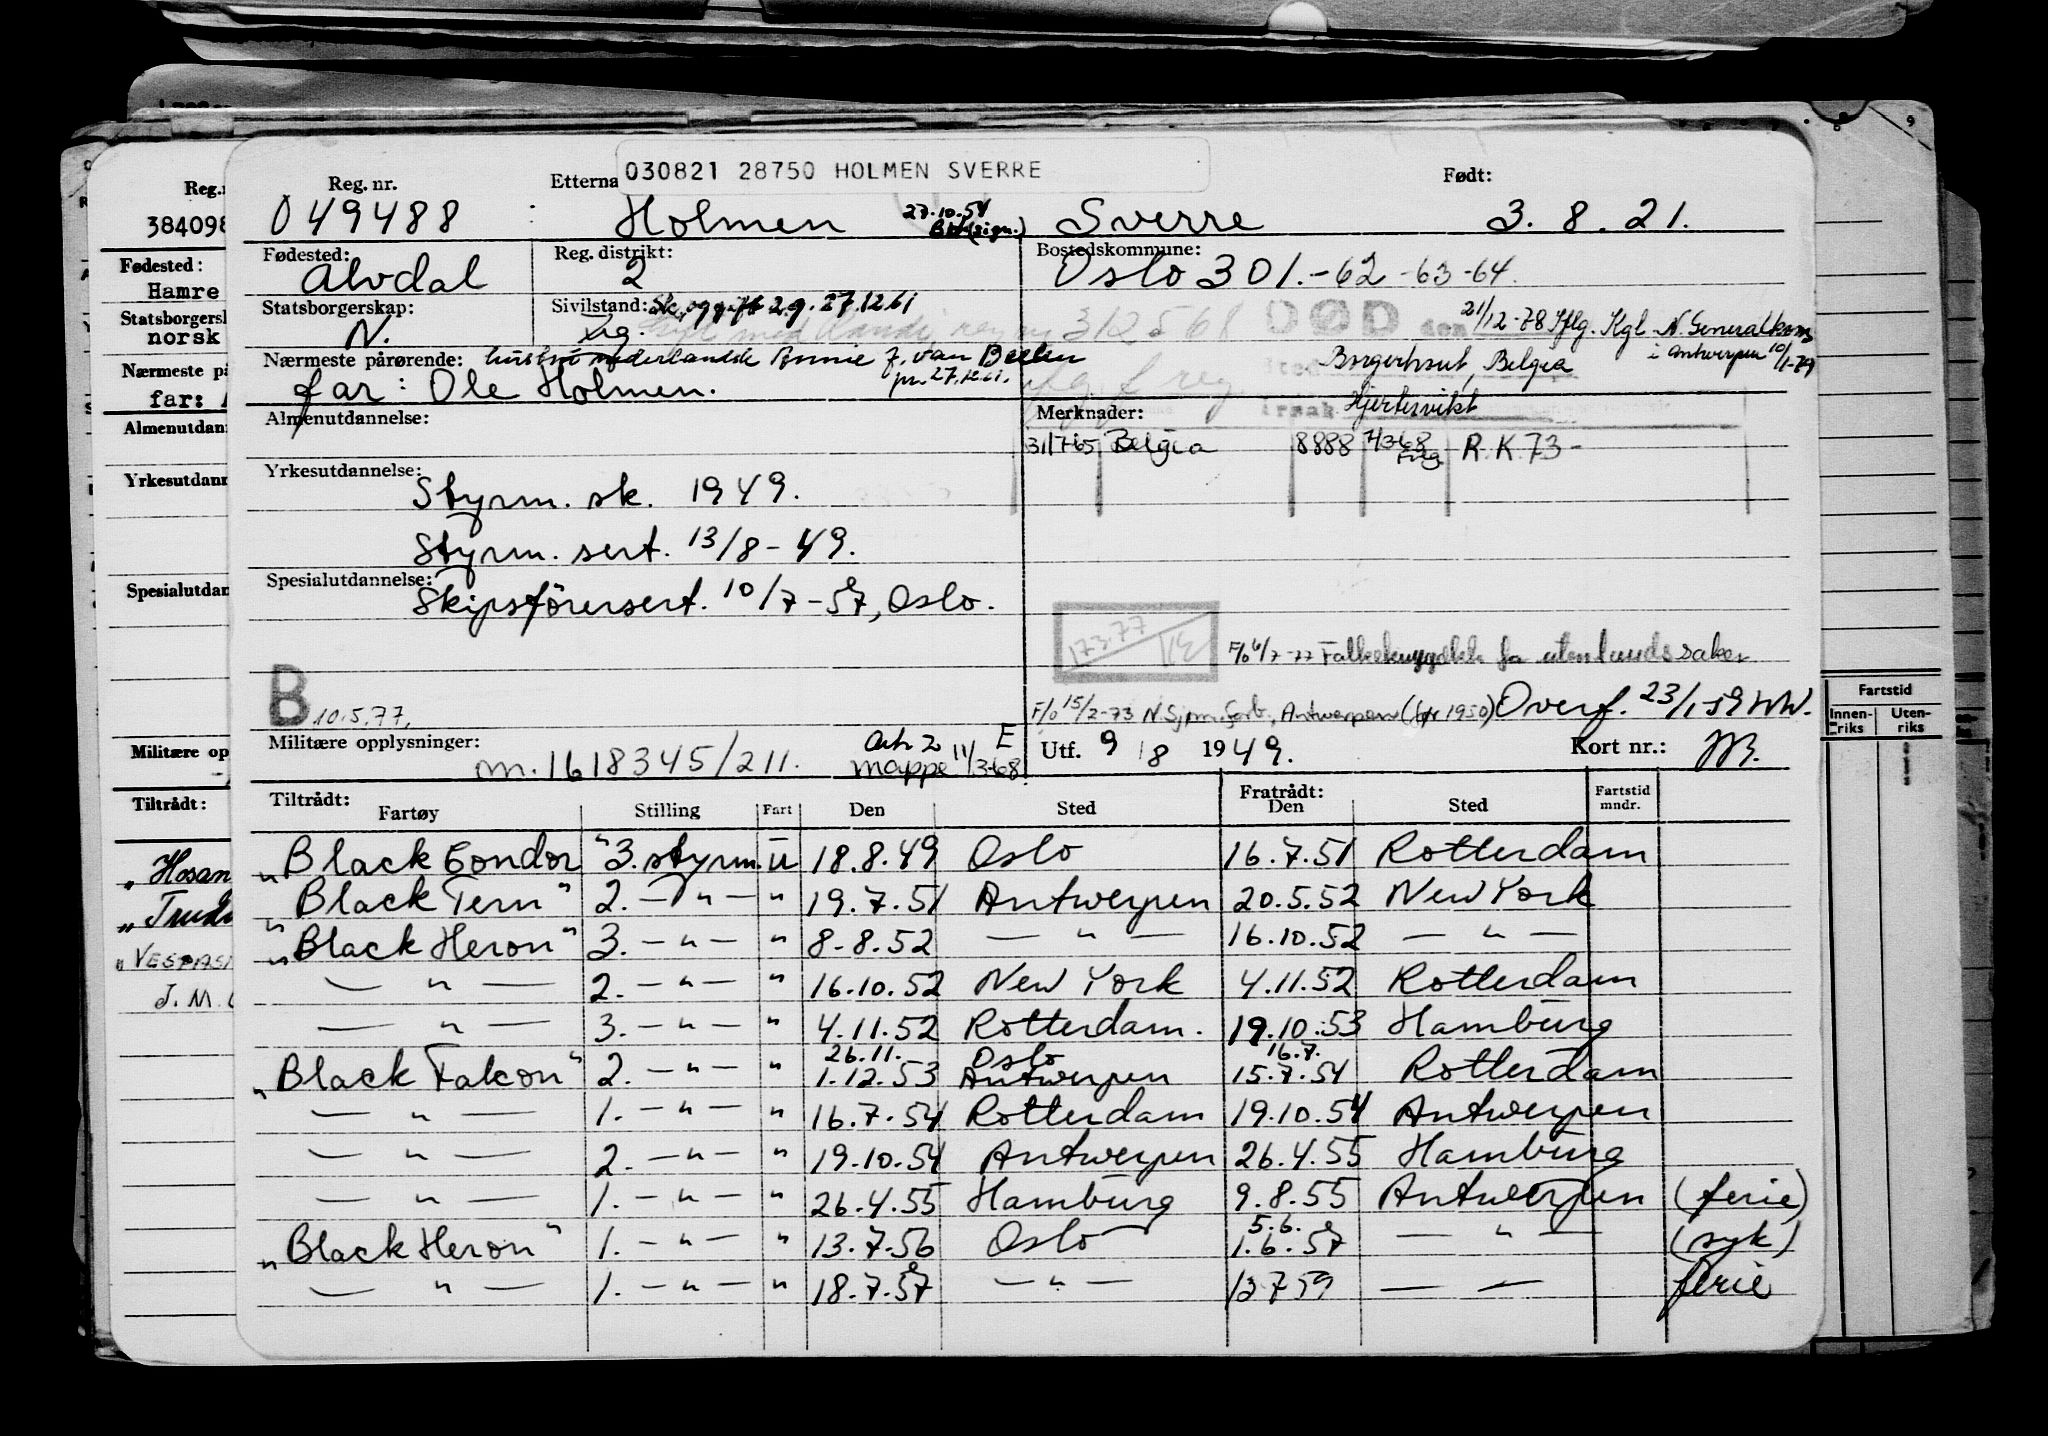 030821 28750 HOLMEN SVERRE
Reg. nr. Etterna Født:
049488 Holmen 27.10.54 Sverre 3.8.21.
Fødested: Alvdal Reg. distrikt: 2 Bostedskommune: Oslo 301.-62-63-64.
Statsborgerskap: N. Sivilstand: Ug. 27.12.61
312568 DØD den 21/12-78 Iflg. Kgl. N. Generalkons
i Antwerpen 10/1-79
Borgerhout, Belgia
Nærmeste pårørende: hustru nederlandsk Annie J. van
pr. 27.12.61.
far: Ole Holmen.
Årsak Hjertesvikt
Almenutdannelse: Merknader:
31/7-65 Belgia 8888 R.K.73-
Yrkesutdannelse:
Styrm. sk. 1949.
Styrm. sert. 13/8-49.
Spesialutdannelse:
Skipsførersert. 10/7-57, Oslo.
173.77
F/o 6/7-77 utenlandssaker
B 10.5.77.
F/o 15/2-73 N. Sjøm. forb., Antwerpen (før 1950) Overf. 23/1-59
Militære opplysninger: m. 1618345/211. mappe 11/3-68 E
Utf. 9/8 1949. Kort nr.:
Tiltrådt: Fratrådt: Fartstid
Fartøy Stilling Fart Den Sted Den Sted mndr.
"Black Condor" 3. styrm. u 18.8.49 Oslo 16.7.51 Rotterdam
"Black Tern" 2. —"— " 19.7.51 Antwerpen 20.5.52 New York
"Black Heron" 3. —"— " 8.8.52 —"— 16.10.52 —"—
—"— 2. —"— " 16.10.52 New York 4.11.52 Rotterdam
—"— 3. —"— " 4.11.52 Rotterdam. 19.10.53 Hamburg
26.11. Oslo 16.7.
"Black Falcon" 2. —"— " 1.12.53 Antwerpen 15.7.54 Rotterdam
—"— 1. —"— " 16.7.54 Rotterdam 19.10.54 Antwerpen
—"— 2. —"— " 19.10.54 Antwerpen 26.4.55 Hamburg
—"— 1. —"— " 26.4.55 Hamburg 9.8.55 Antwerpen (ferie)
5.6.
"Black Heron" 1. —"— " 13.7.56 Oslo 1.6.57 —"— (syk)
—"— 1. —"— " 18.7.57 —"— 13 7 59 — — ferie
Reg.n
384098
Fødested:
Hamre
Statsborgersk
norsk
Nærmeste på
far:
Almenutdann
Yrkesutdann
Spesialutdan
Militære op
Tiltrådt:
"Hosan
"Trud
"VESPASI
J. M.
Fartstid
Innen-riks Uten-riks